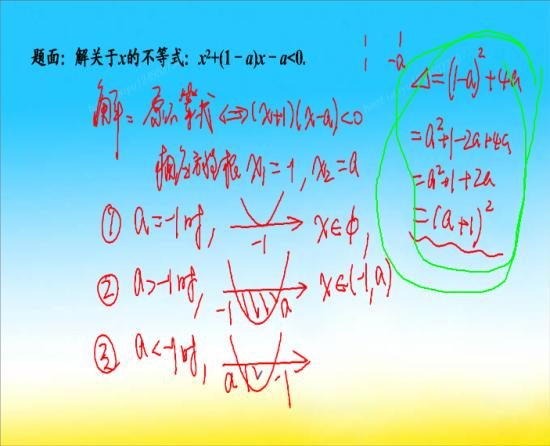 题面：解关于x的不等式：x²+(1－a)x－a<0.
1 1
1 -a
解：原不等式⇔(x+1)(x-a)<0
相应方程根 x₁=-1, x₂=a
① a=-1时, -1 x∈ϕ,
② a>-1时, -1 a x∈(-1,a)
③ a<-1时, a -1
Δ=(1-a)²+4a
=a²+1-2a+4a
=a²+1+2a
=(a+1)²